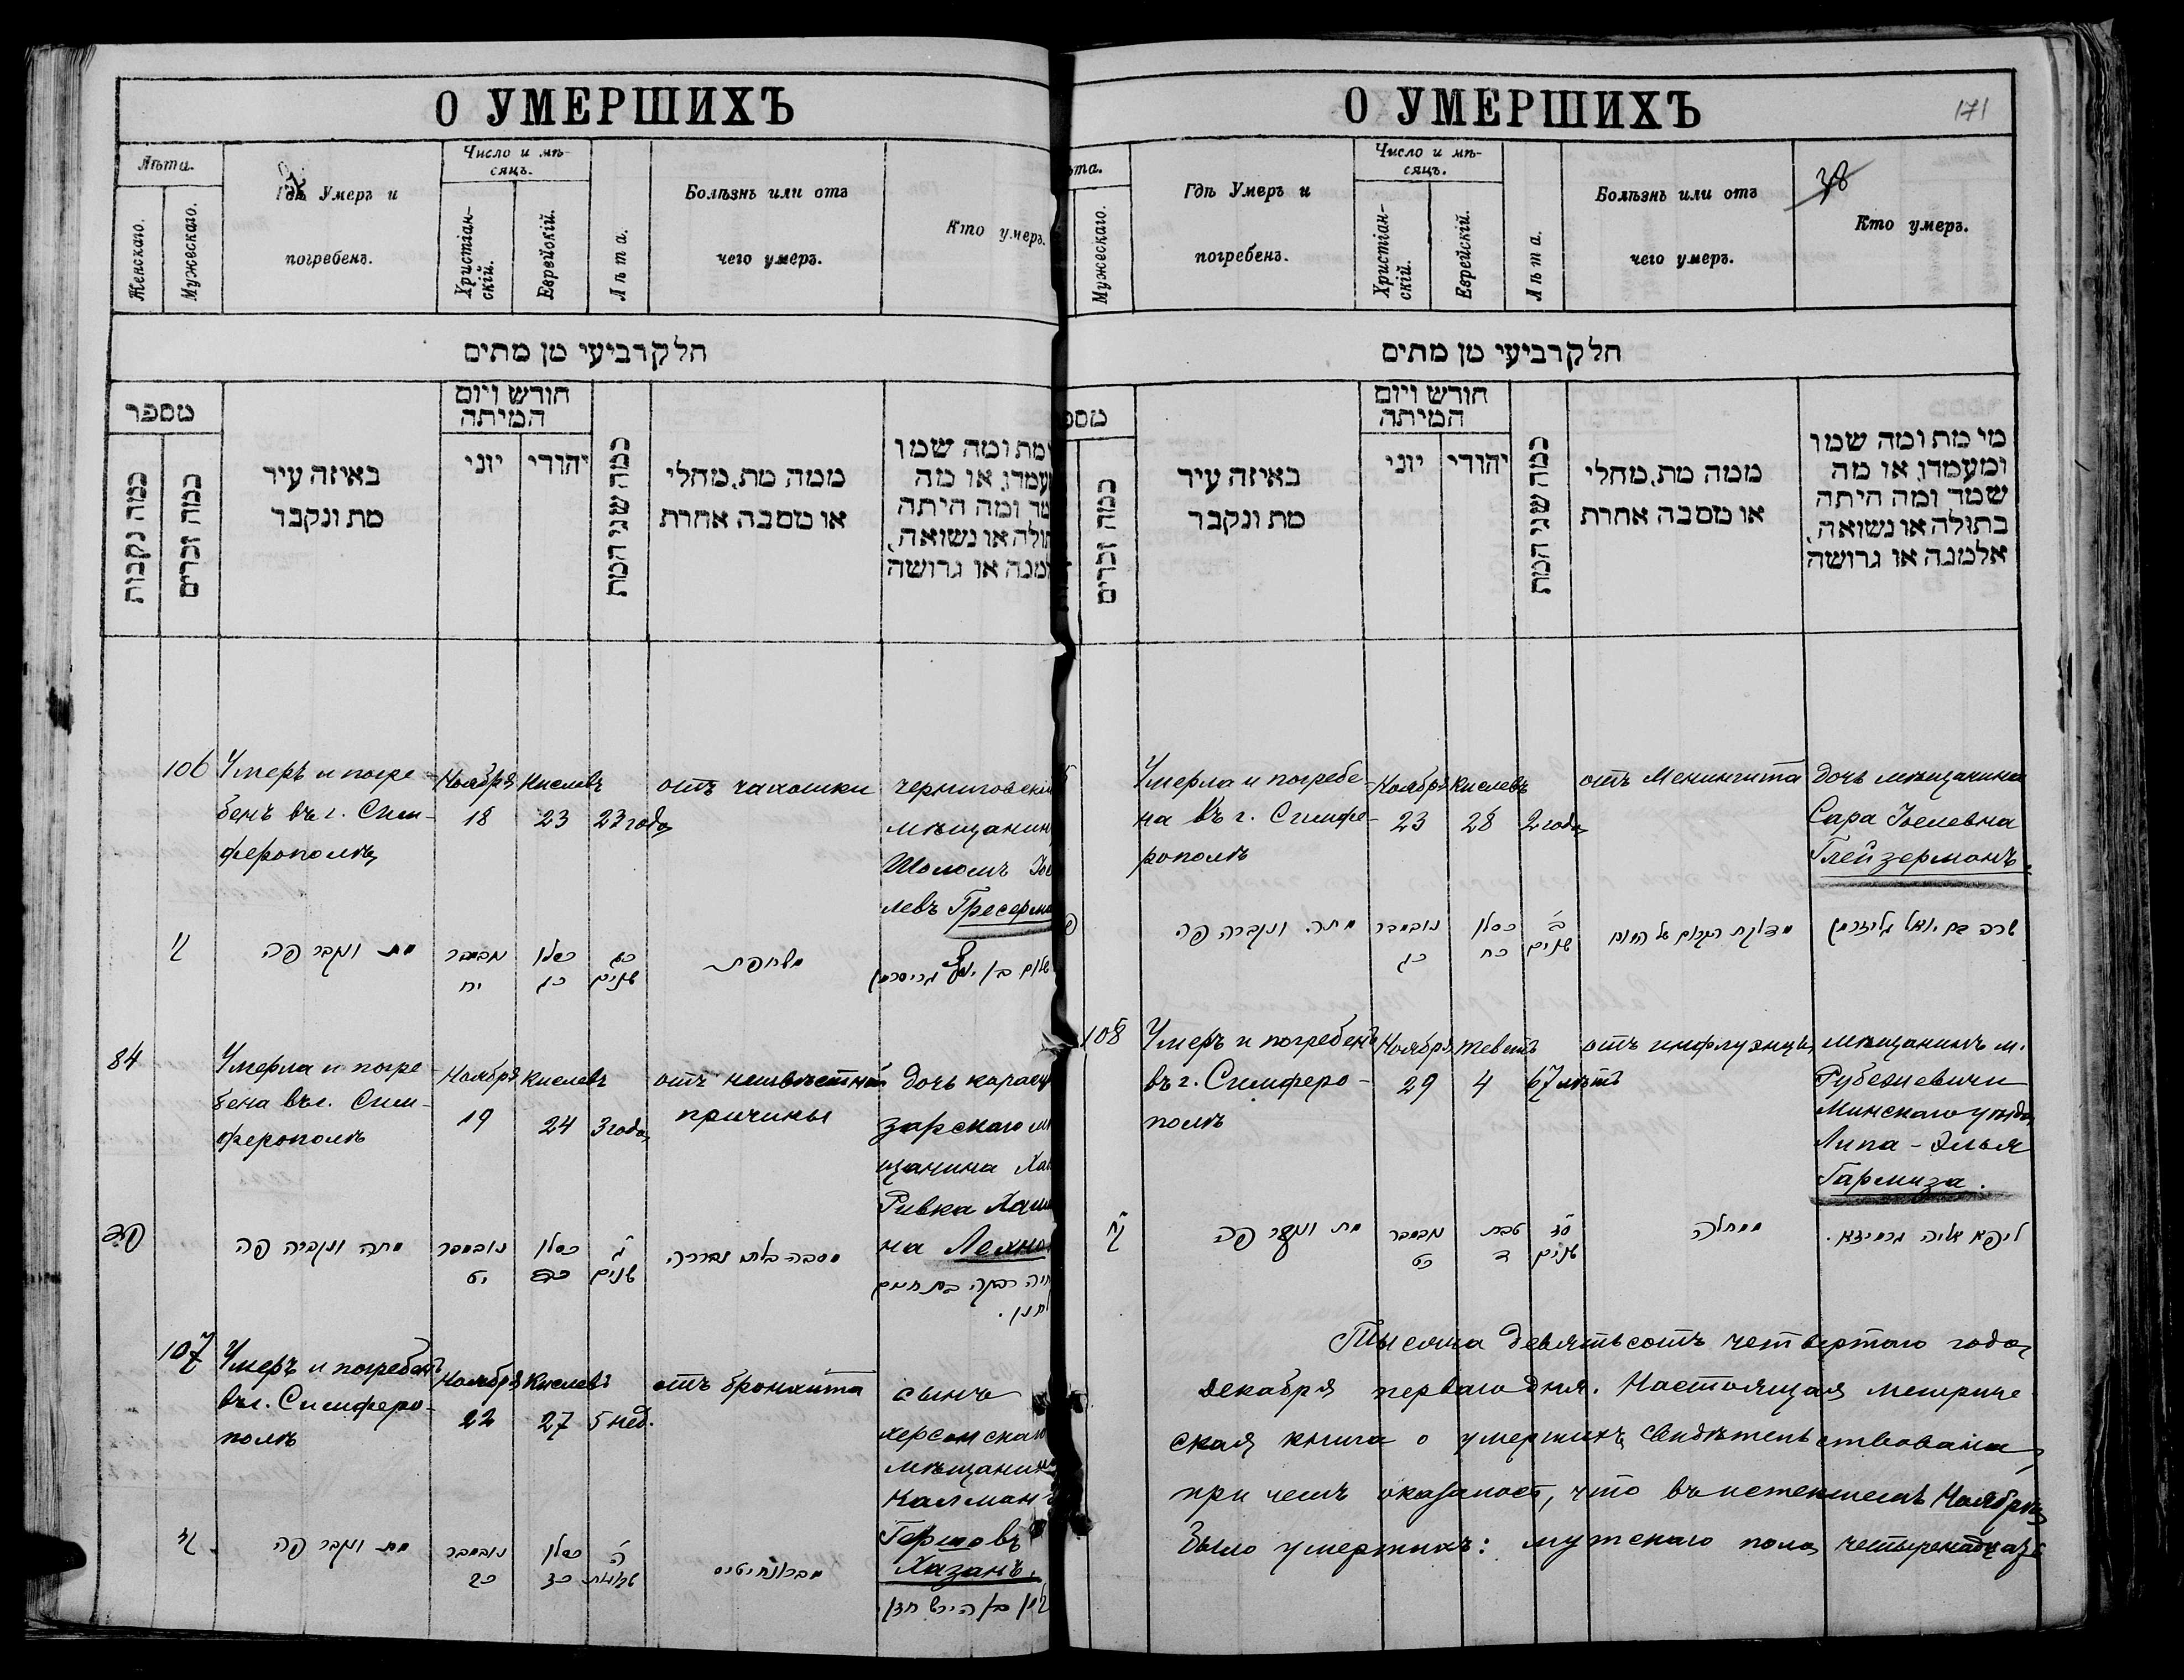 О УМЕРШИХЪ
Лѣта.
Женскаго.
Мужескаго.
Гдѣ Умеръ и
погребенъ.
Число и мѣ-
сяцъ.
Христіан-
скій.
Еврейскій.
Лѣта.
Болѣзнь или отъ
чего умеръ.
Кто умеръ.
חלק רביעי מן מתים
מספר
כמה נקבות
כמה זכרים
באיזה עיר
מת ונקבר
חודש ויום
המיתה
יוני
יהודי
כמה שני המת
ממה מת, מחלי
או מסבה אחרת
מת ומה שמו
או מה
ומה היתה
או נשואה,
או גרושה
106
Умеръ и погре-
бенъ въ г. Сим-
ферополѣ
Ноябрь
18
Кислевъ
23
23 года
отъ чахотки
черниговскій
мѣщанинъ
Шоломъ
левъ
מת ונקבר פה
נובמבר
יח
כסלו
כג
כג
שנים
משחפת
שלום בן
84
Умерла и погре-
бена въ г. Сим-
ферополѣ
Ноябрь
19
Кислевъ
24
3 года
отъ неизвѣстной
причины
дочь карасу
зарскаго мѣ
щанина
Ривка Хаим
на Лехно
פד
מתה ונקברה פה
נובמבר
יט
כסלו
כד
ג
שנים
מסבה בלתי נודעה
חיה רבקה בת חיים
107
Умеръ и погребенъ
въ г. Симферо-
полѣ
Ноябрь
22
Кислевъ
27
5 нед.
отъ бронхита
сынъ
херсонскаго
мѣщанина
Калманъ
Гершовъ
Хазанъ.
מת ונקבר פה
נובמבר
כב
כסלו
כז
ה
שבועות
מבראנחיטיס
בן הירש חזן.
О УМЕРШИХЪ
171
Мужескаго.
Гдѣ Умеръ и
погребенъ.
Число и мѣ-
сяцъ.
Христіан-
скій.
Еврейскій.
Лѣта.
Болѣзнь или отъ
чего умеръ.
Кто умеръ.
חלק רביעי מן מתים
כמה זכרים
באיזה עיר
מת ונקבר
חודש ויום
המיתה
יוני
יהודי
כמה שני המת
ממה מת, מחלי
או מסבה אחרת
מי מת ומה שמו
ומעמדו, או מה
שמד ומה היתה
בתולה או נשואה,
אלמנה או גרושה
Умерла и погребе-
на въ г. Симфе-
рополѣ
Ноябрь
23
Кислевъ
28
2 года
отъ Менингита
дочь мѣщанина
Сара Іоелевна
Глейзерманъ.
מתה ונקברה פה
נובמבר
כג
כסלו
כח
ב
שנים
מדלקת קרום של המוח
שרה בת יואל גלייזרמן
108
Умеръ и погребенъ
въ г. Симферо-
полѣ
Ноябрь
29
Теветъ
4
67 лѣтъ
отъ инфлуэнцы
мѣщанинъ м.
Рубежевичи
Минскаго уѣзда
Липа-Элья
Гармиза.
מת ונקבר פה
נובמבר
כט
טבת
ד
סז
שנים
ליפא אליה גרמיזא.
Тысяча девятьсотъ четвертаго года
декабря перваго дня. Настоящая метриче-
ская книга о умершихъ свидѣтельствована,
при чемъ оказалось, что въ истекшемъ Ноябрѣ
было умершихъ: мужскаго пола четырнадцать